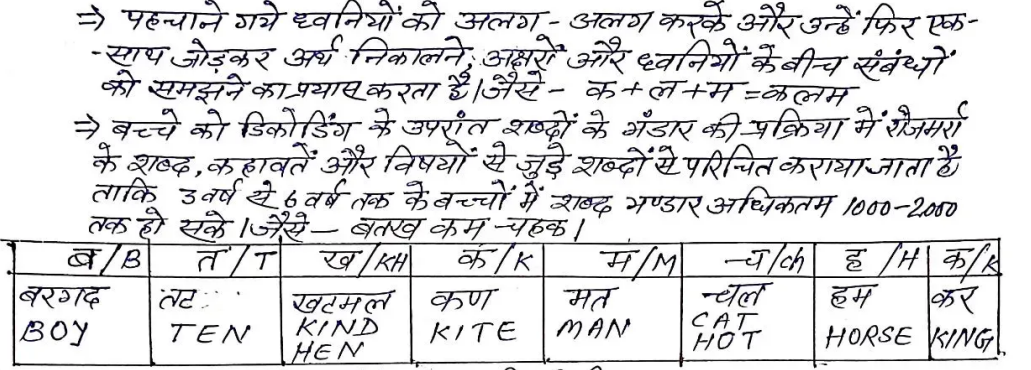 ⇒ पहचाने गये ध्वनियों को अलग - अलग करके और उन्हें फिर एक-
-साथ जोड़कर अर्थ निकालने, अक्षरों और ध्वनियों के बीच संबंधों
को समझने का प्रयास करता है। जैसे - क+ल+म=कलम
⇒ बच्चे को डिकोडिंग के उपरांत शब्दों के भंडार की प्रक्रिया में रोजमर्रा
के शब्द, कहावतें और विषयों से जुड़े शब्दों से परिचित कराया जाता है
ताकि 3 वर्ष से 6 वर्ष तक के बच्चों में शब्द भण्डार अधिकतम 1000-2000
तक हो सके। जैसे — बतख कम चहक।
ब/B त/T ख/KH क/K म/M च/ch ह/H क/K
बरगद तट खटमल कण मत चल हम कर
BOY TEN KIND KITE MAN CAT HORSE KING
HEN HOT